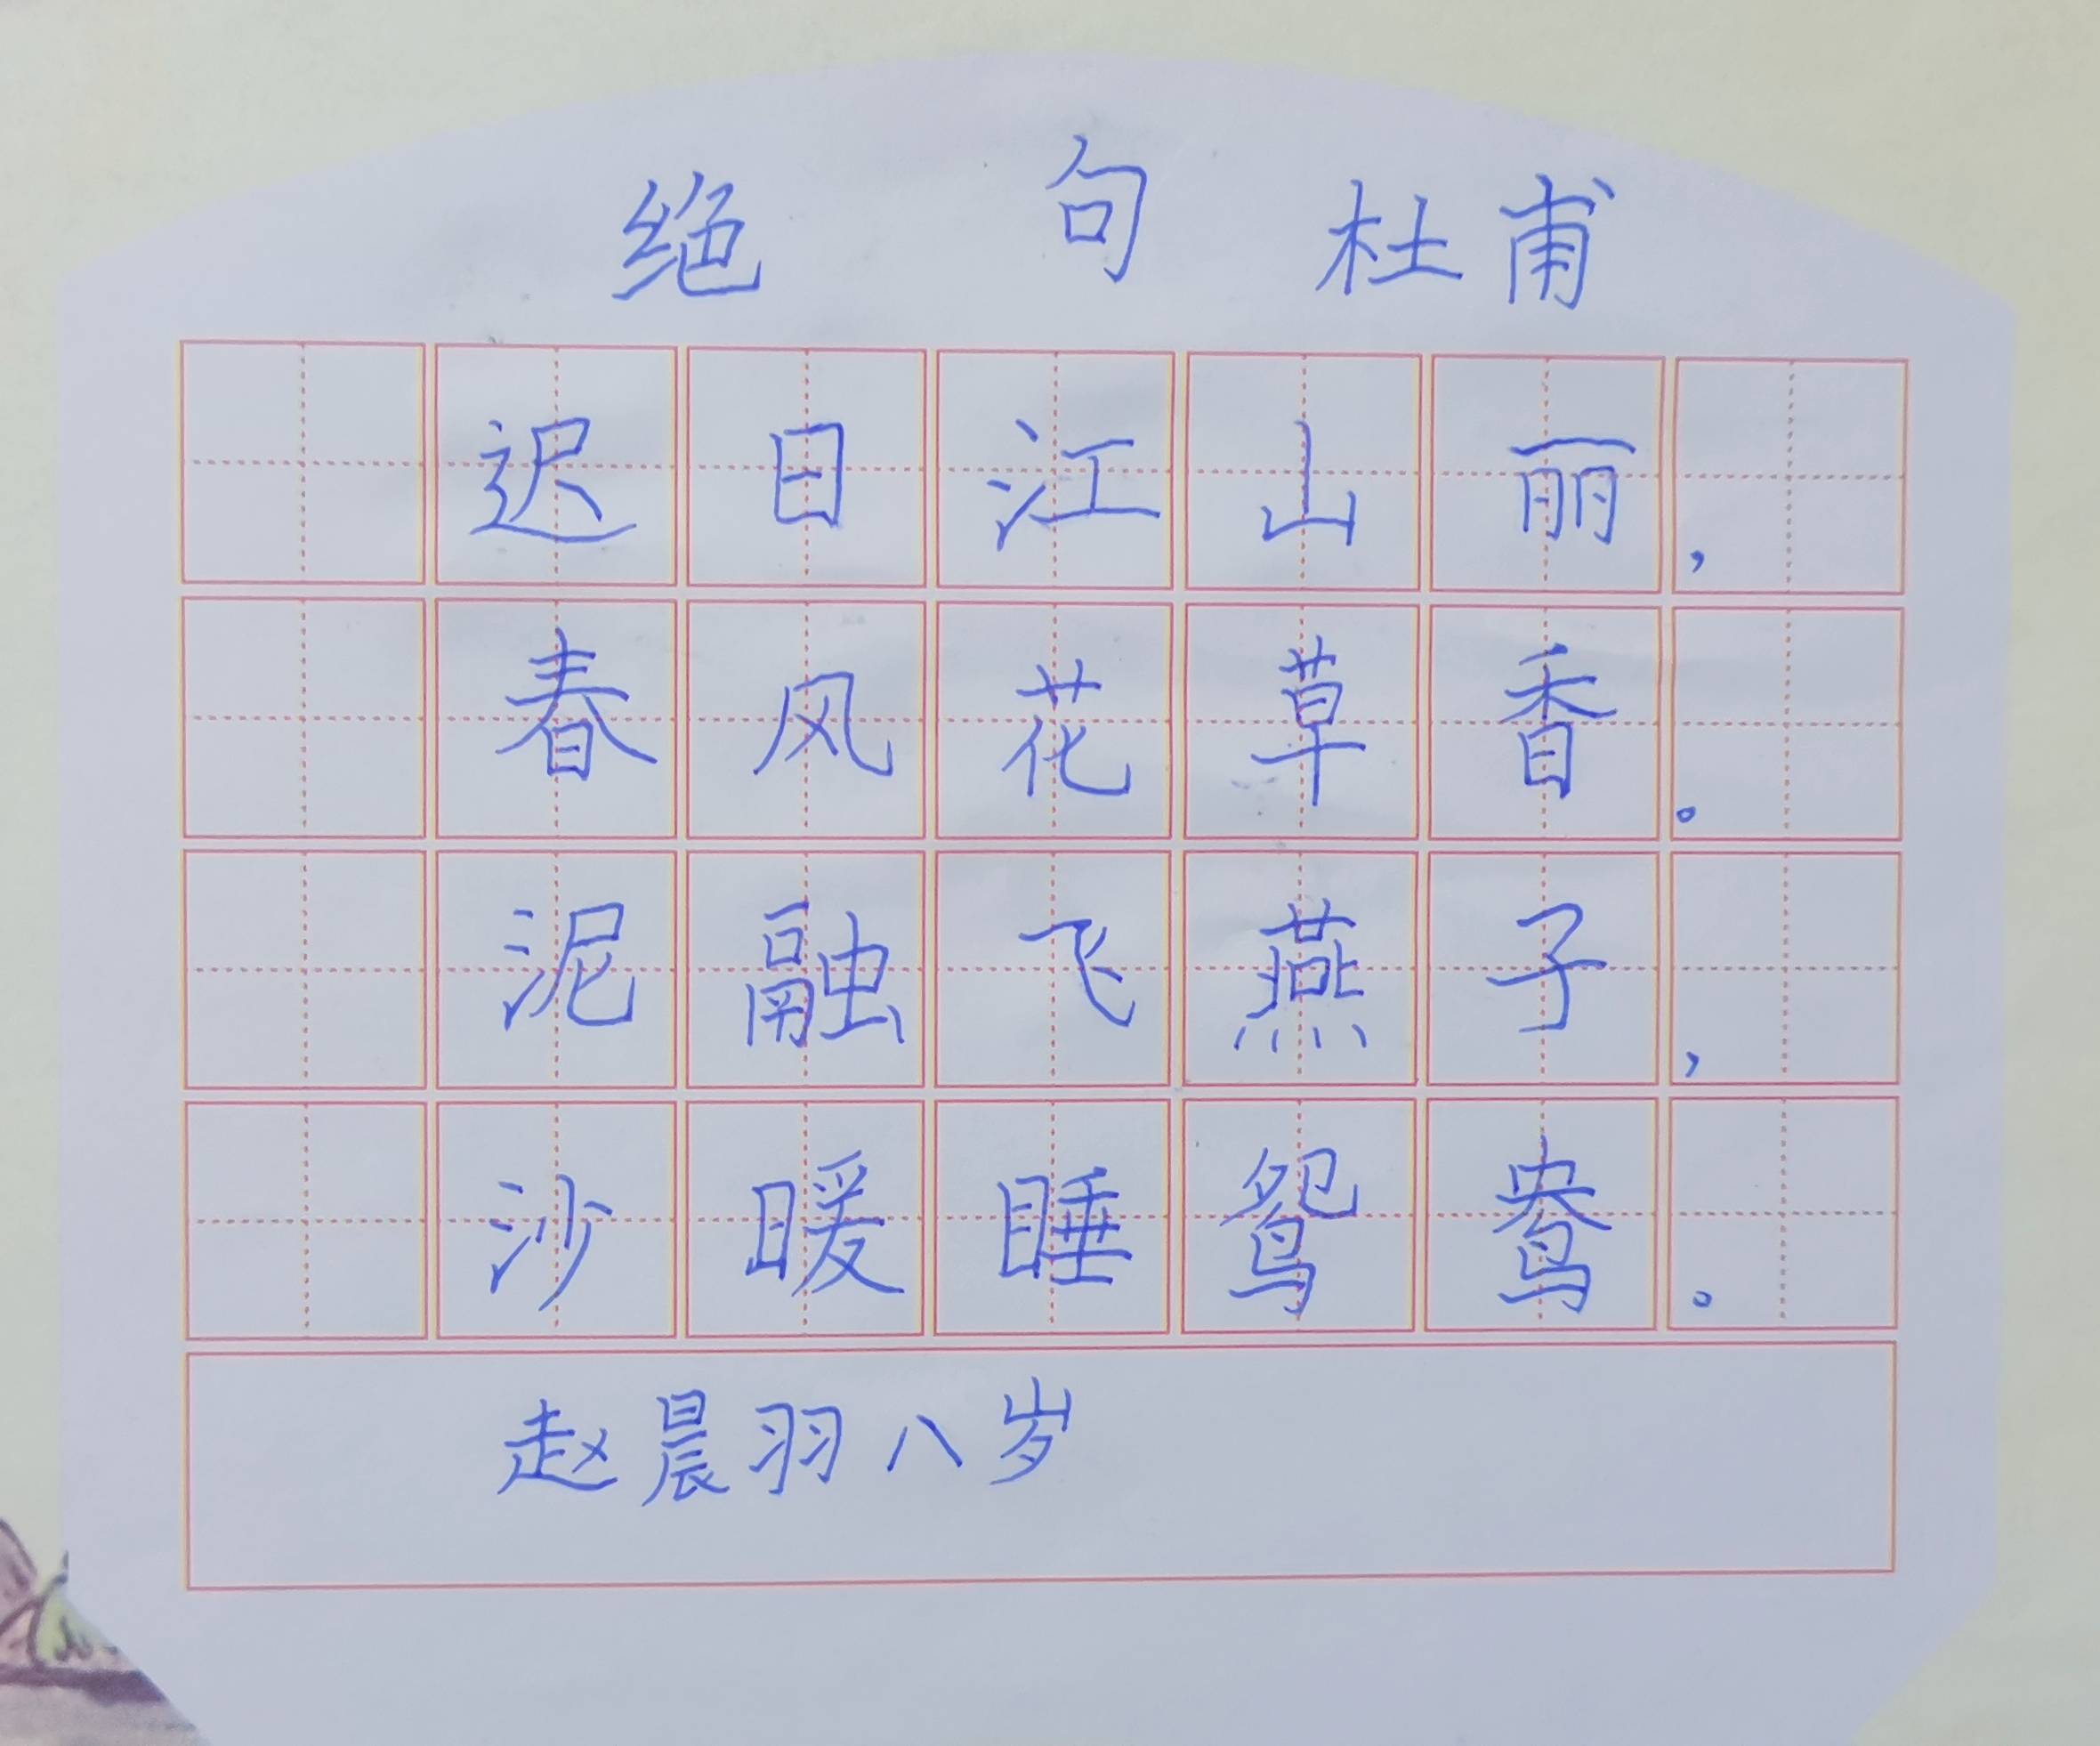 绝句 杜甫
迟日江山丽，
春风花草香。
泥融飞燕子，
沙暖睡鸳鸯。
赵晨羽八岁